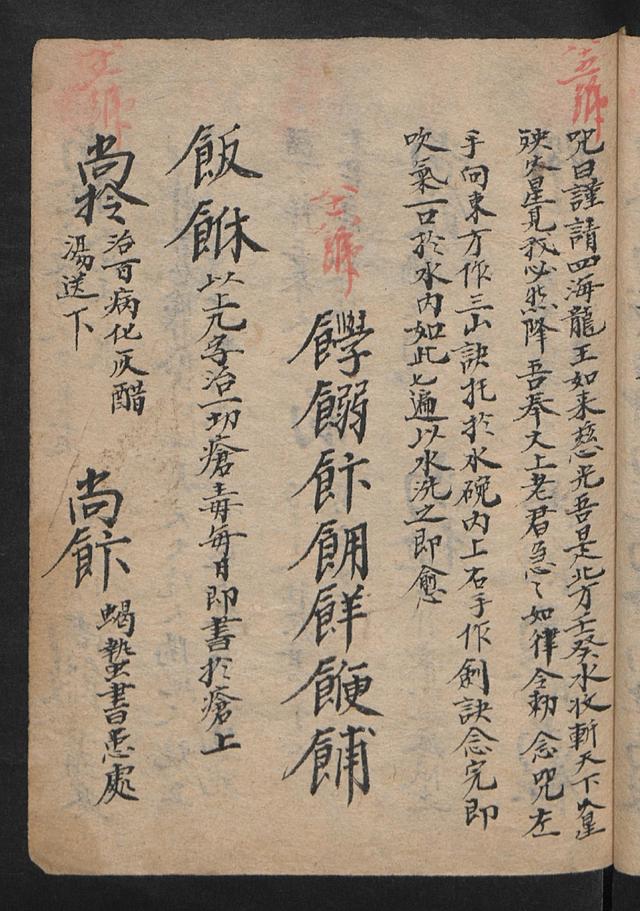 五號
咒曰謹請四海龍王如来慈光吾是北方壬癸水收斬天下火星
殃火星見我必然降吾奉太上老君急々如律令勅念咒左
手向東方作三山訣托於水碗内上右手作劍訣念完即
吹氣一口於水内如此七遍以水洗之即愈
六號
餑䬫飰𩚬餅䭇餔
飯 以上九字治一切瘡毒每日即書於瘡上
號
尚拎 治百病化灰醋
湯送下
尚飰 蝎蟄書患處